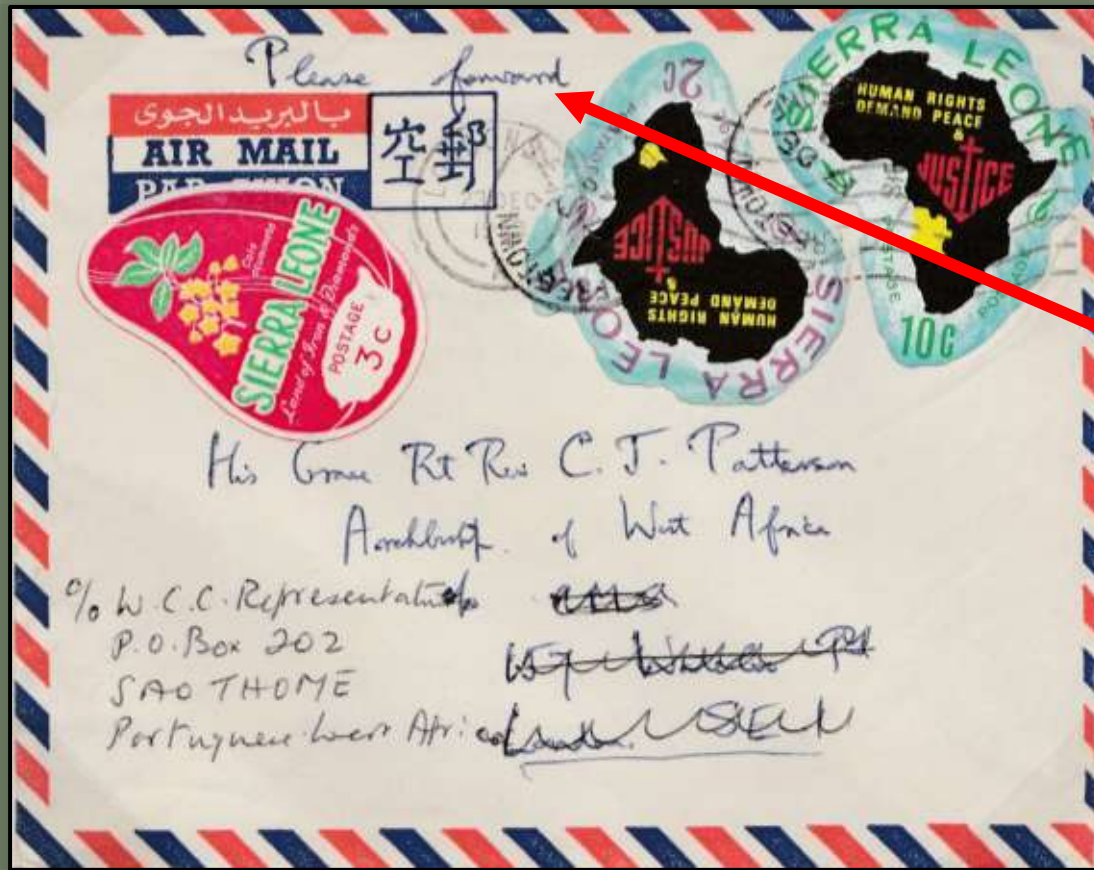 Please forward
بالبريد الجوى
AIR MAIL
PAR AVION
空郵
SIERRA LEONE
Land of Iron & Diamonds
POSTAGE
3c
2c
SIERRA LEONE
HUMAN RIGHTS
DEMAND PEACE
&
JUSTICE
SIERRA LEONE
HUMAN RIGHTS
DEMAND PEACE
&
JUSTICE
POSTAGE
10c
His Grace Rt Rev C. J. Patterson
Archbishop of West Africa
c/o W.C.C. Representative
P.O. Box 202
SAO THOME
Portuguese West Africa
London